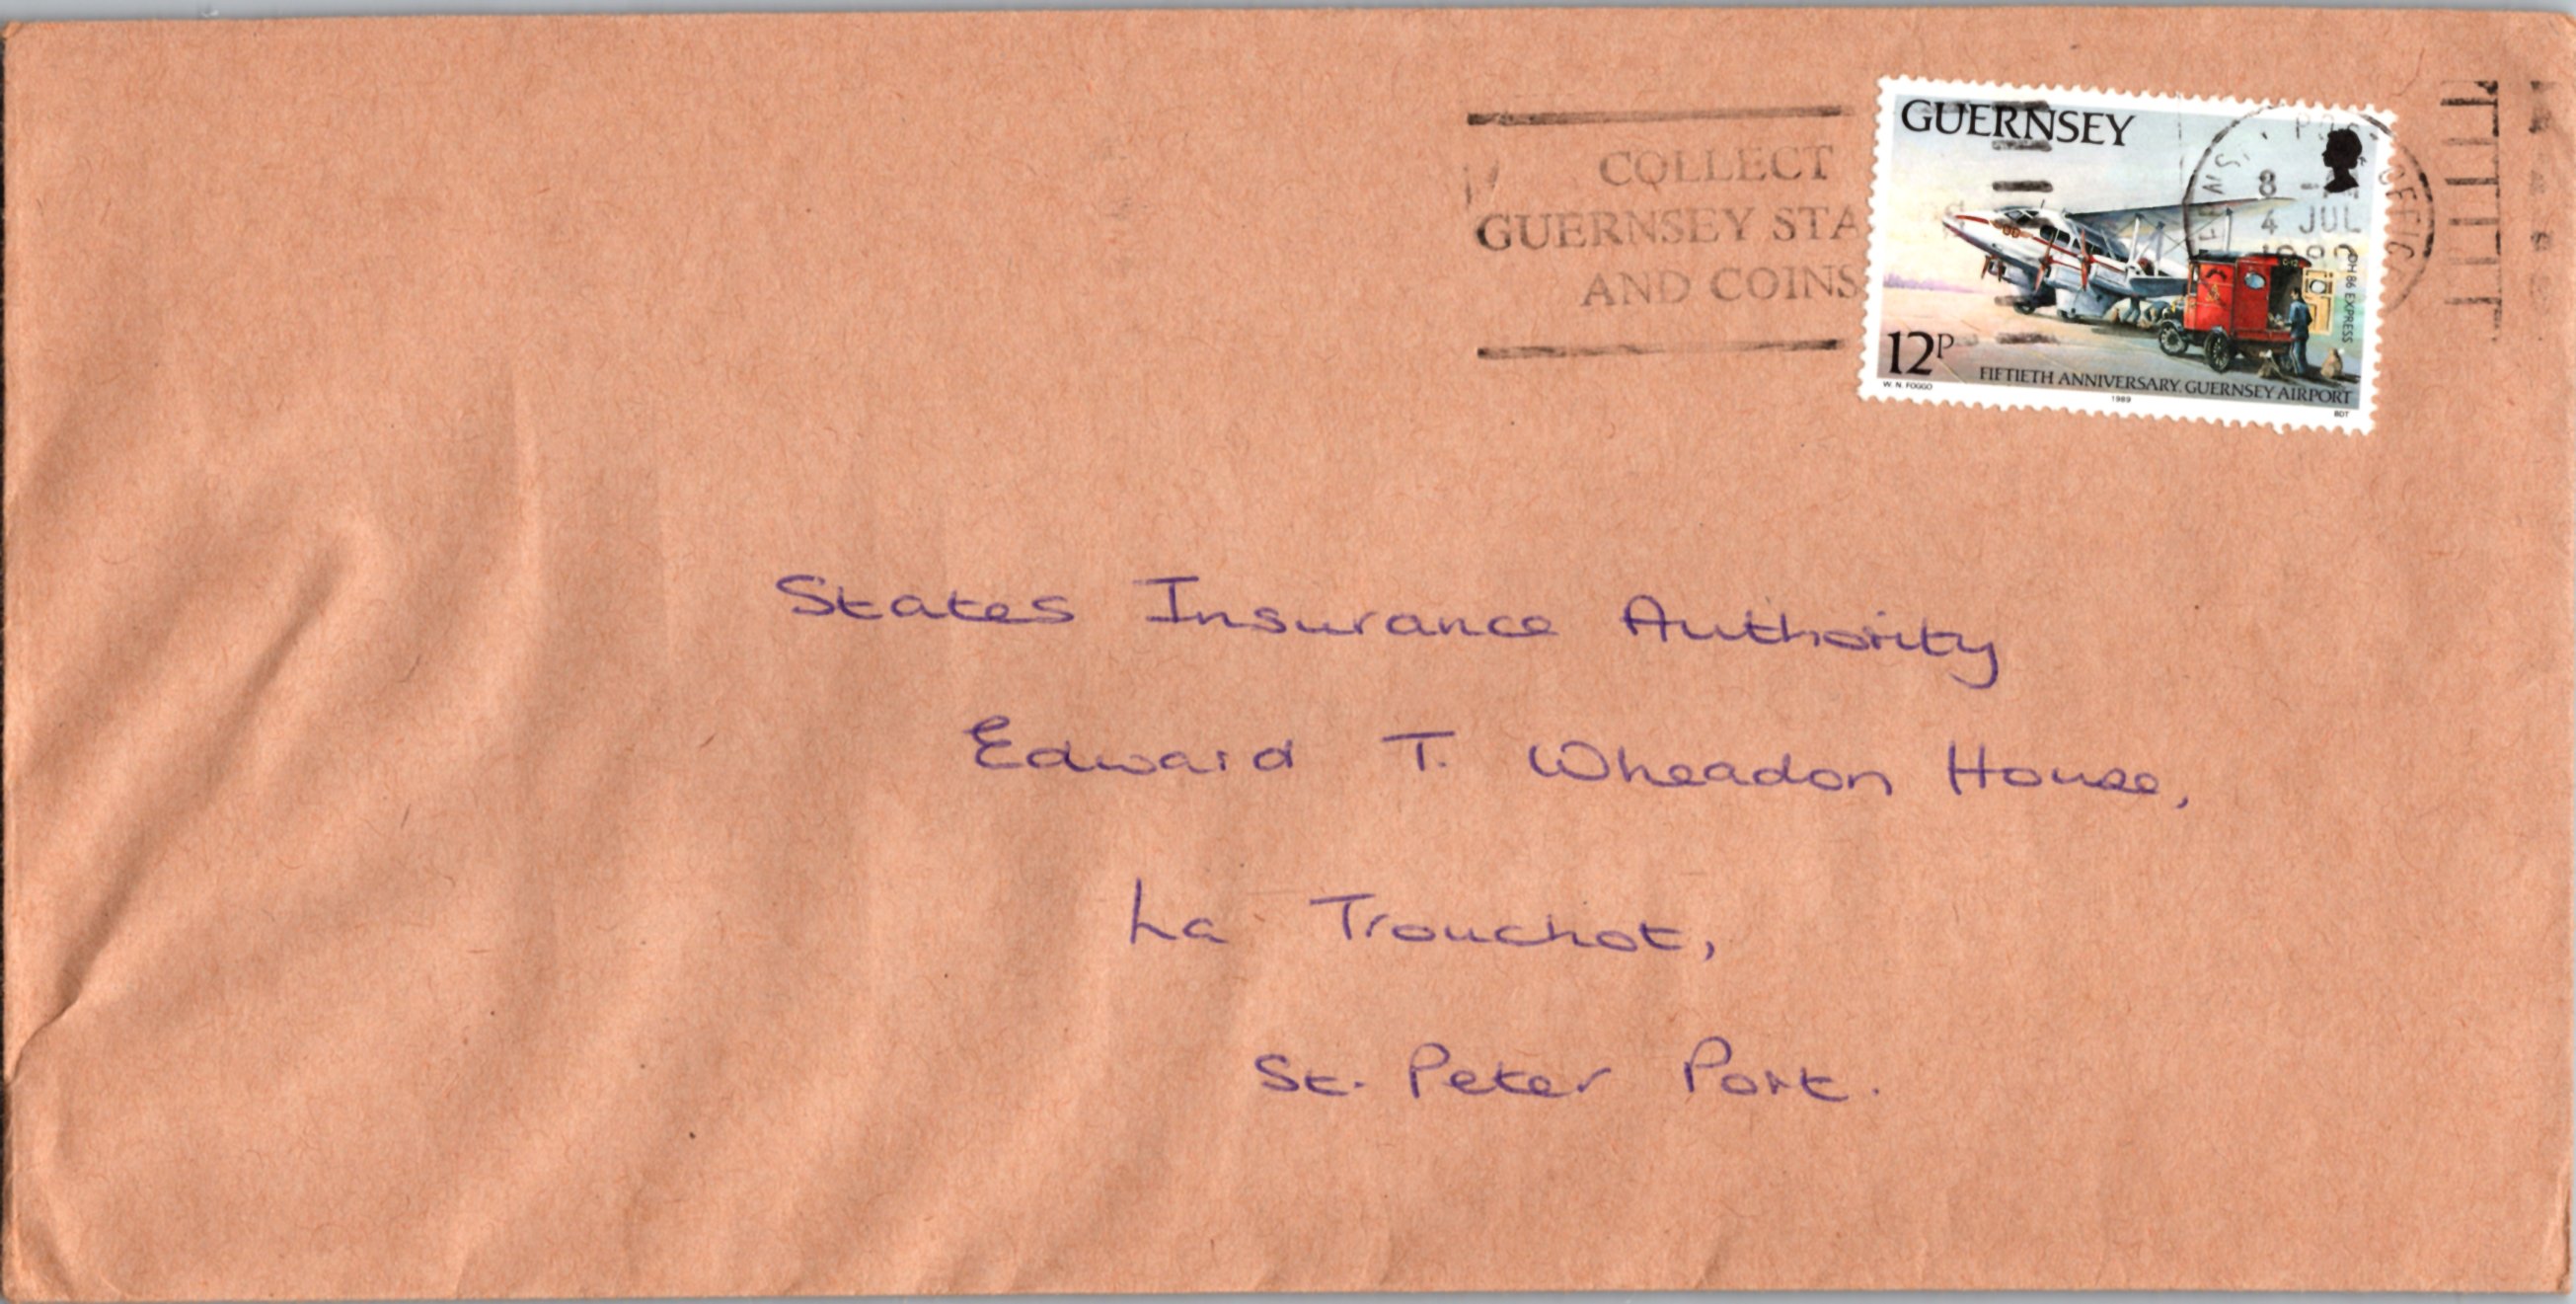 COLLECT
GUERNSEY STA
AND COINS
GUERNSEY
POST OFFICE
8 -
4 JUL
DH86 EXPRESS
12P
FIFTIETH ANNIVERSARY. GUERNSEY AIRPORT
W. N. FOGGO
1989
BDT
States Insurance Authority
Edward T. Wheadon House,
La Trouchot,
St. Peter Port.